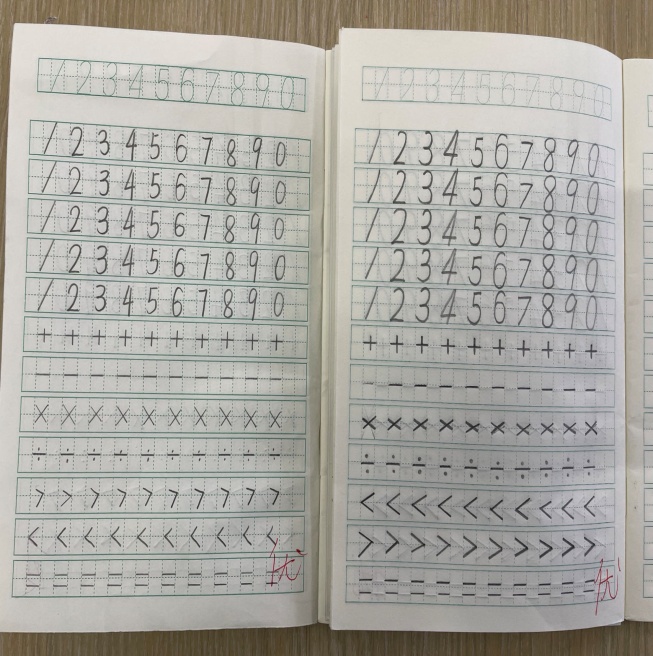 1 2 3 4 5 6 7 8 9 0
1 2 3 4 5 6 7 8 9 0
1 2 3 4 5 6 7 8 9 0
1 2 3 4 5 6 7 8 9 0
1 2 3 4 5 6 7 8 9 0
1 2 3 4 5 6 7 8 9 0
+ + + + + + + + + +
− − − − − − − − − −
× × × × × × × × × ×
÷ ÷ ÷ ÷ ÷ ÷ ÷ ÷ ÷ ÷
> > > > > > > > > >
< < < < < < < < < <
= = = = = = = = = =
优
1 2 3 4 5 6 7 8 9 0
1 2 3 4 5 6 7 8 9 0
1 2 3 4 5 6 7 8 9 0
1 2 3 4 5 6 7 8 9 0
1 2 3 4 5 6 7 8 9 0
1 2 3 4 5 6 7 8 9 0
+ + + + + + + + + +
− − − − − − − − − −
× × × × × × × × × ×
÷ ÷ ÷ ÷ ÷ ÷ ÷ ÷ ÷ ÷
< < < < < < < < < <
> > > > > > > > > >
= = = = = = = = = =
优